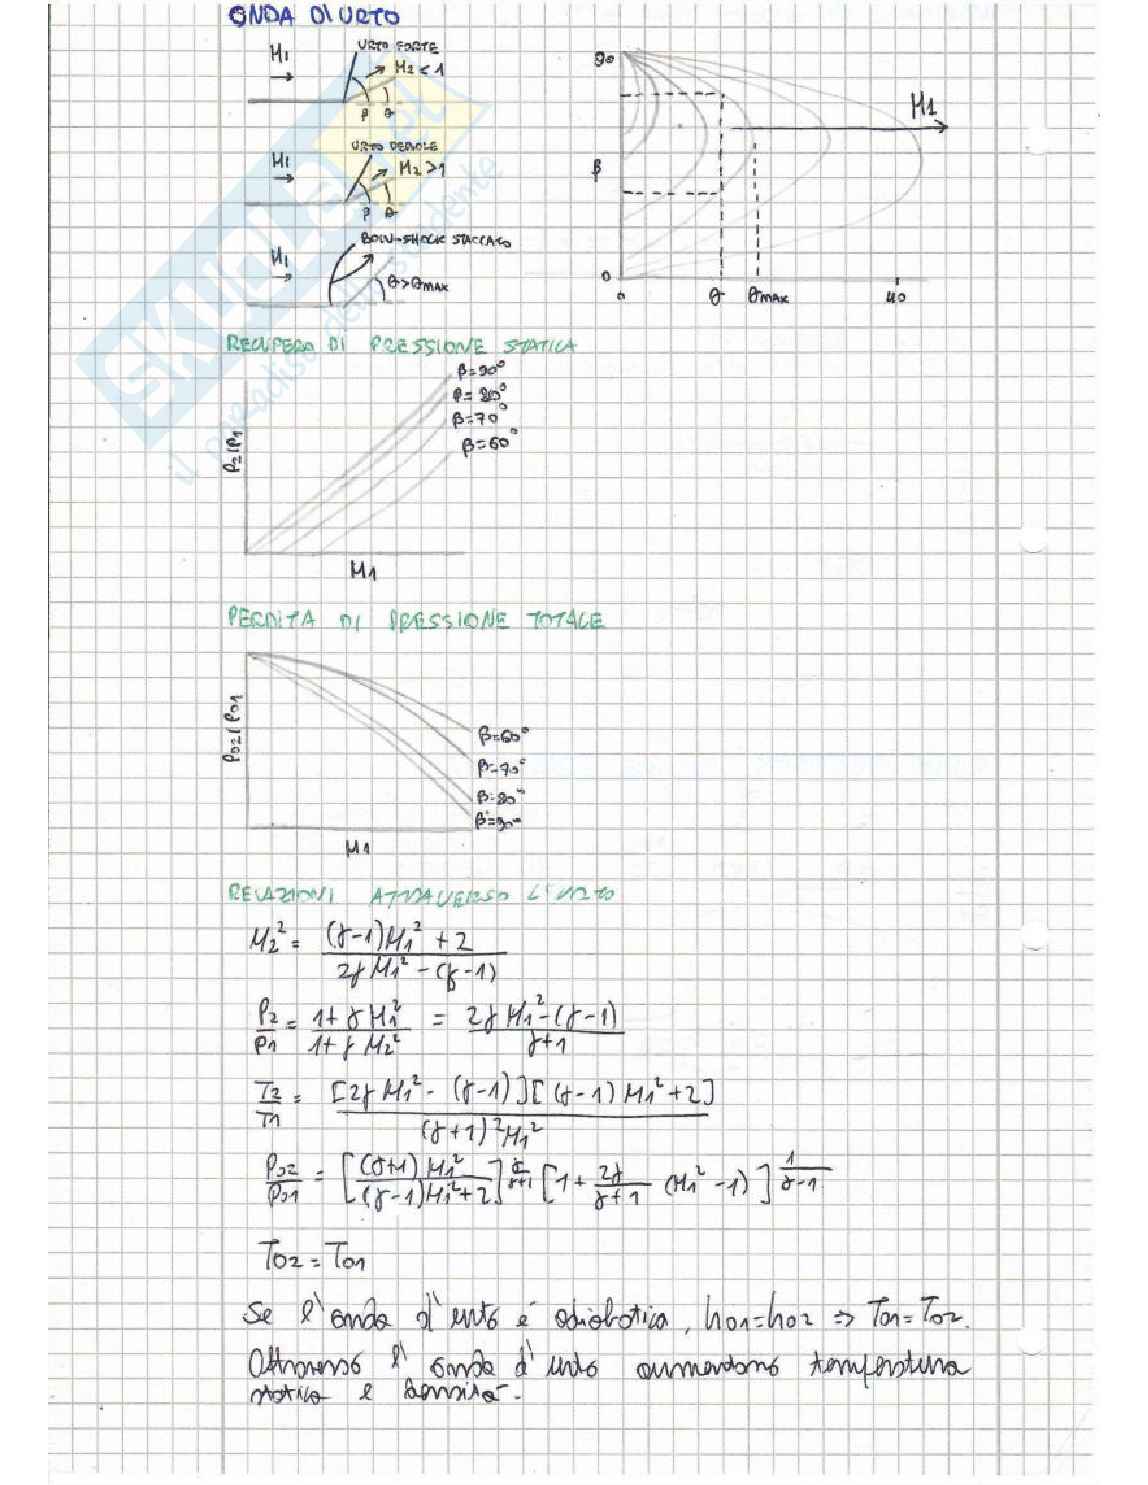 ONDA D'URTO
M1
URTO FORTE
M2 < 1
β θ
M1
URTO DEBOLE
M2 > 1
β θ
M1
BOW-SHOCK STACCATO
θ > θMAX
90
β
0
0 θ θMAX 40
M1
RECUPERO DI PRESSIONE STATICA
β=90°
β=80°
β=70°
β=60°
P2/P1
M1
PERDITA DI PRESSIONE TOTALE
P02/P01
β=60°
β=70°
β=80°
β=90°
M1
RELAZIONI ATTRAVERSO L'URTO
M2² = ((γ-1)M1² + 2) / (2γM1² - (γ-1))
P2/P1 = (1+γM1²) / (1+γM2²) = (2γM1² - (γ-1)) / (γ+1)
T2/T1 = [2γM1² - (γ-1)][(γ-1)M1² + 2] / ((γ+1)²M1²)
P02/P01 = [(γ+1)M1² / ((γ-1)M1² + 2)]^(γ/(γ+1)) [1 + 2γ/(γ+1) (M1² - 1)]^(1/(γ-1))
T02 = T01
Se l'onda d'urto è adiabatica, h01=h02 ⇒ T01=T02.
Attraverso l'onda d'urto aumentano temperatura
statica e densità.
SKUOLA.net
il paradiso dello studente